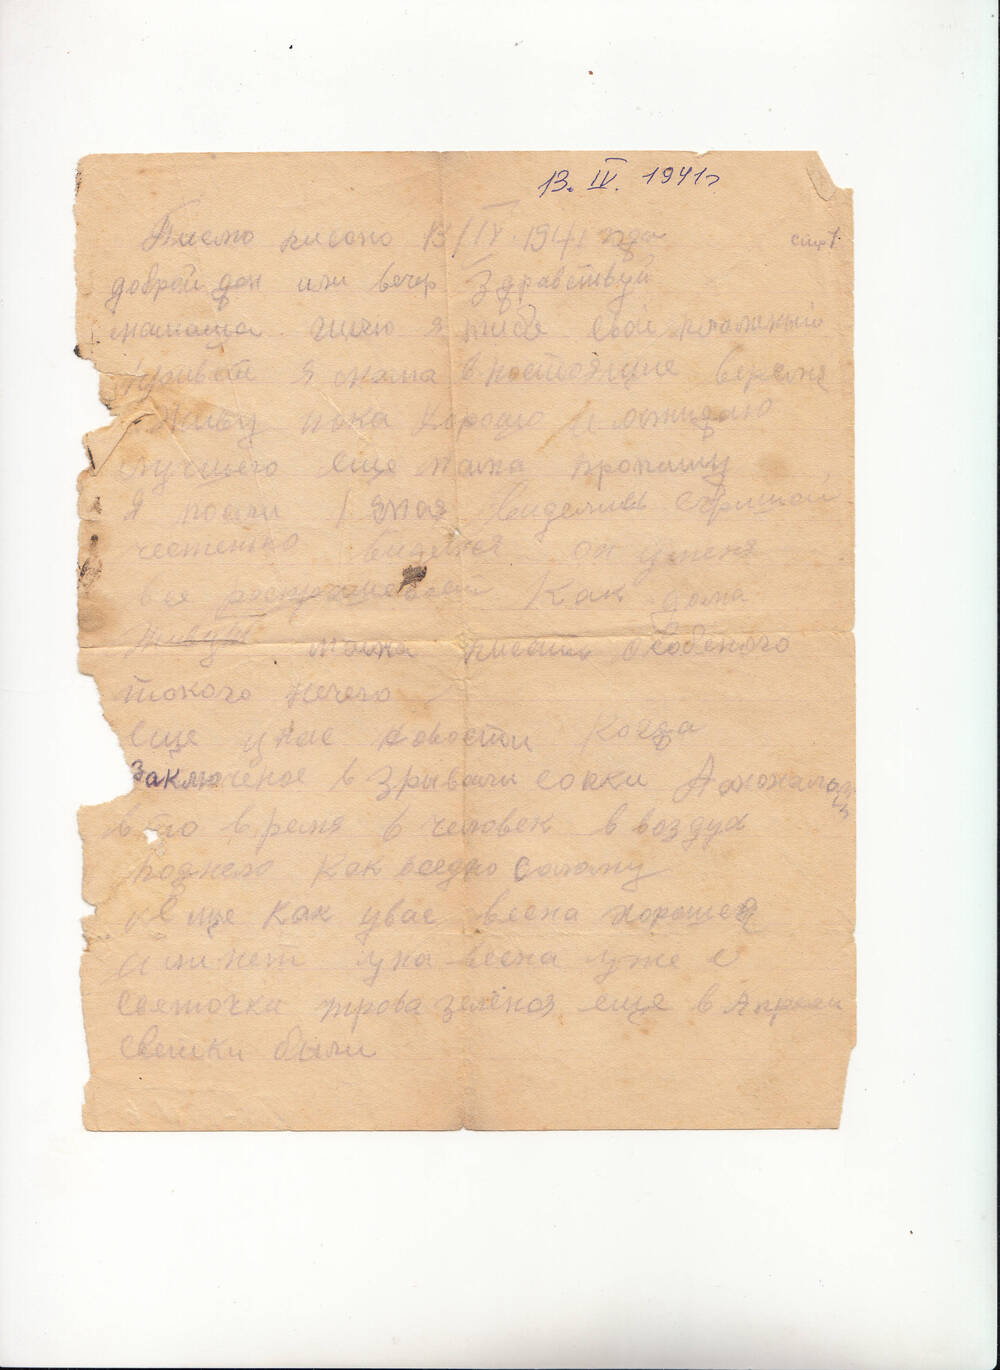 13. IV. 1941г
Писмо писоно 13/IV. 1941 года
стр 1.
доброй дэн или вечер Здравствуй
мамаша. Шлю я тибе свой пламеный
привет Я мама в настоящие веремя
Живу пока хорошо и ожидаю
лучшего еще мама пропишу
Я после 1 мая виделись с Гришай
честенко видемся он уменя
все роспрашевает Как дома
живут мама писать особеного
токого нечего
Еще унас новости Когда
Заключеное взрывали сопки Аммоналом
вто время 6 человек в воздух
подняло Как вседно солому
Еще как увас весна хорошея
или нет уна весна уже и
светочки трова зеленоя еще в Апреле
светки были